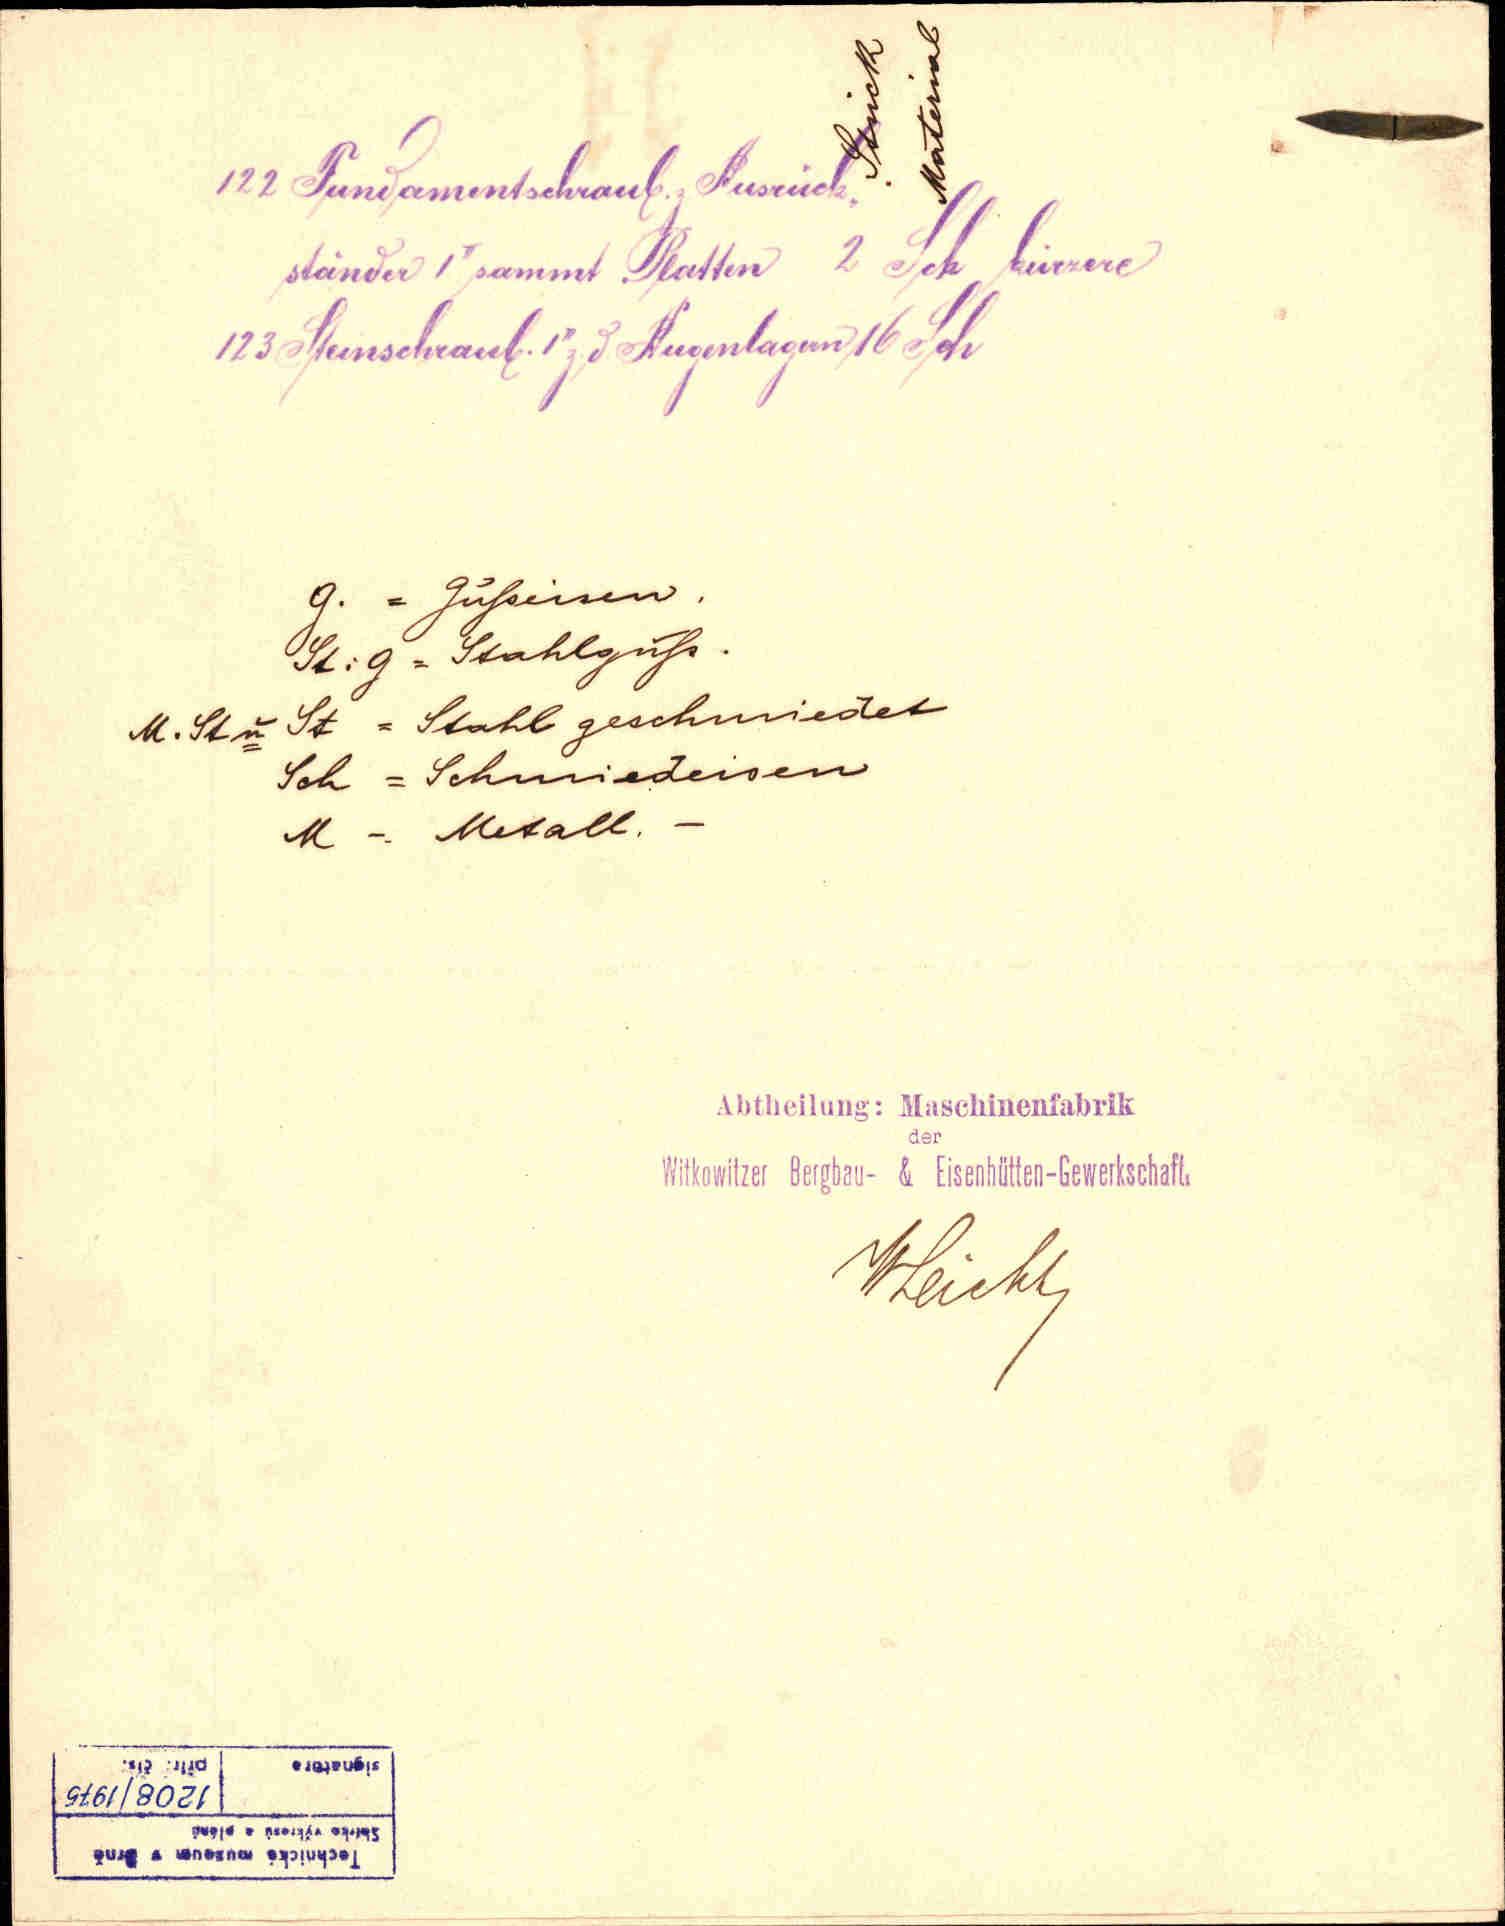 Stück
Material
122 Fundamentschraub. z Ausrück-
ständer 1" sammt Platten 2 Sch kürzere
123 Steinschraub. 1" z. d Augenlagern 16 Sch
G. = Gußeisen.
St: G = Stahlguß.
M. St u St = Stahl geschmiedet
Sch = Schmiedeisen
M = Metall. –
Abtheilung: Maschinenfabrik
der
Witkowitzer Bergbau- & Eisenhütten-Gewerkschaft.
Technické muzeum v Brně
Sbírka výkresů a plánů
signatura přír. čís.
1208/1975